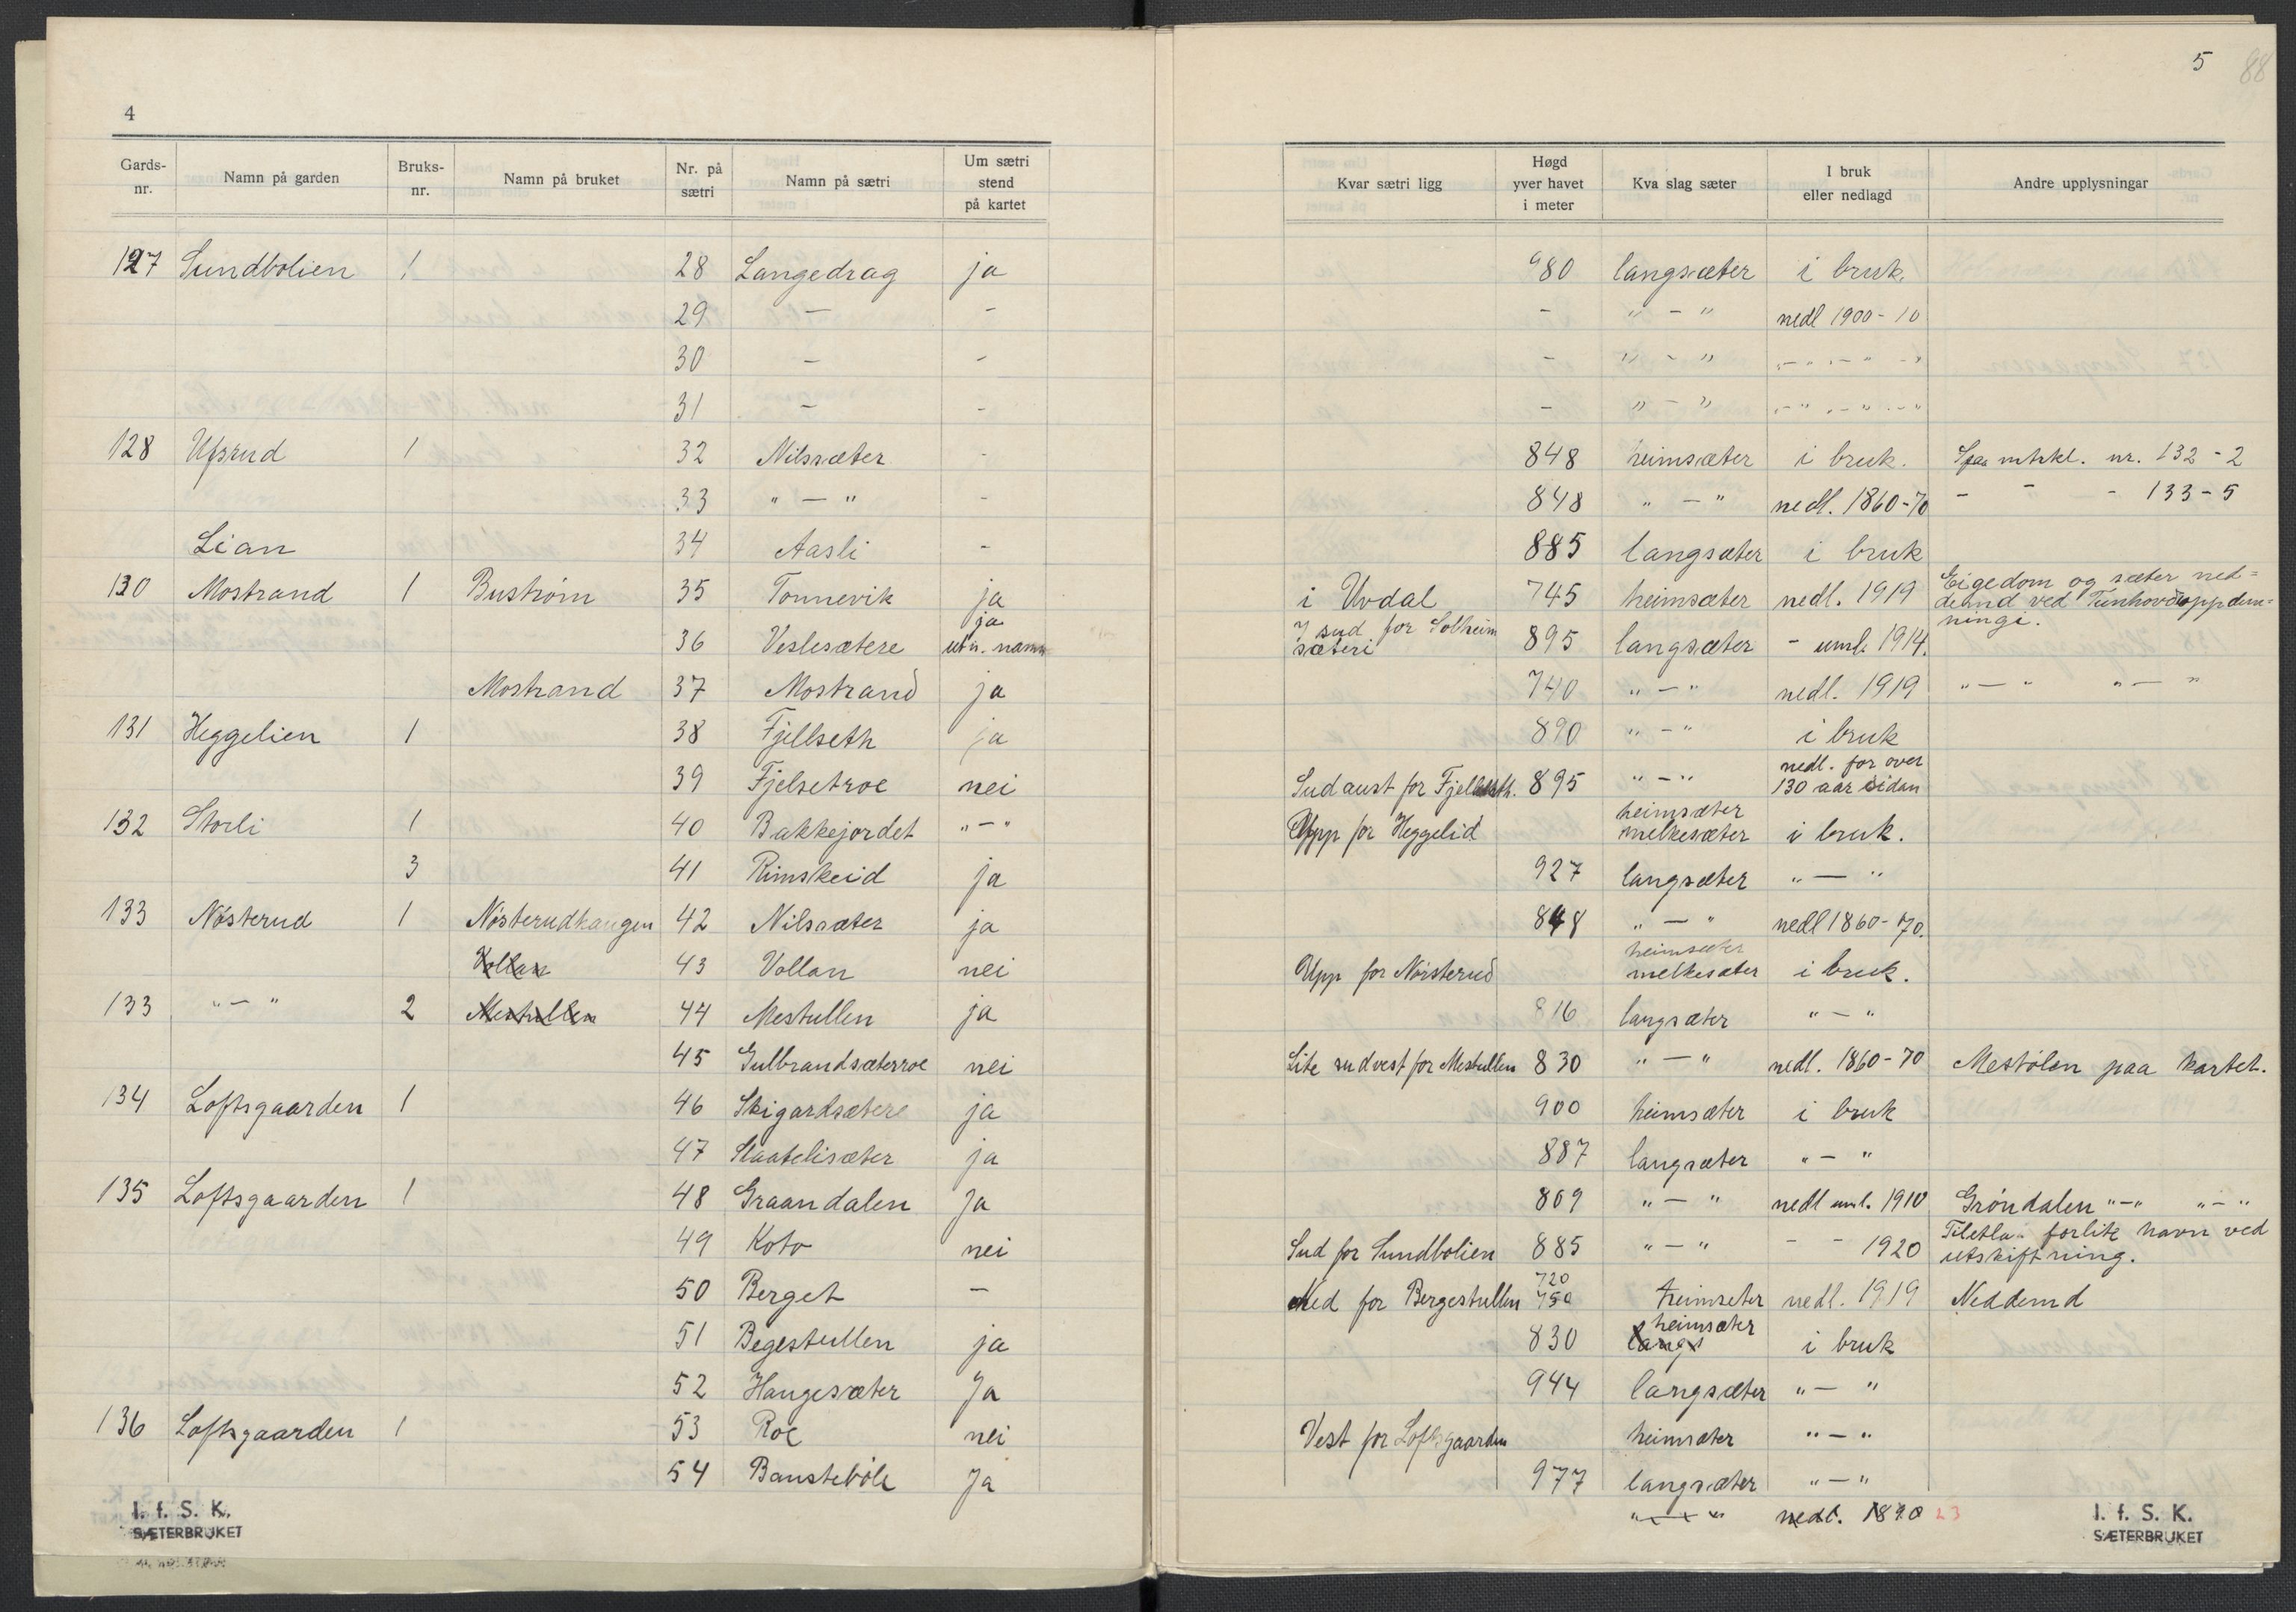 4
Gards-nr. Namn på garden Bruks-nr. Namn på bruket Nr. på sætri Namn på sætri Um sætri stend på kartet
127 Sundbolien 1 28 Langedrag ja
29 — -
30 — -
31 — -
128 Ufsrud 1 32 Nilssæter -
33 " — " -
Lian 34 Aasli -
130 Mostrand 1 Bustrøm 35 Tonnevik ja
36 Veslesætere ja utn. namn
Mostrand 37 Mostrand ja
131 Heggelien 1 38 Fjellseth ja
39 Fjelsetroe nei
132 Storli 1 40 Bakkejordet " — "
3 41 Rimskeid ja
133 Nøsterud 1 Nøsterudhaugen 42 Nilssæter ja
Vollan 43 Vollan nei
133 " — " 2 Mestullen 44 Mestullen ja
45 Gulbrandsæterroe nei
134 Loftsgaarden 1 46 Skigardsætere ja
47 Slaatelisæter ja
135 Loftsgaarden 1 48 Graandalen Ja
49 Koto nei
50 Berget —
51 Begestullen ja
52 Haugesæter Ja
136 Loftsgaarden 1 53 Roe nei
54 Baustebøle Ja
I. f. S. K.
SÆTERBRUKET
5 88
Kvar sætri ligg Høgd yver havet i meter Kva slag sæter I bruk eller nedlagd Andre upplysningar
980 langsæter i bruk.
- " — " nedl 1900-10
- " — " " — " — "
- " — " " — " — "
848 heimsæter i bruk. Spaa mtrkl. nr. 132-2
848 " — " nedl. 1860-70 - - - 133-5
885 langsæter i bruk
i Uvdal 745 heimsæter nedl. 1919 Eigedom og sæter ned=
demd ved Tunhovdoppdem=
ningi.
sud for Solheim
sæteri 895 langsæter - uml. 1914.
740 " — " nedl. 1919 " — " " — "
890 " — " i bruk
Sudaust for Fjellseth. 895 " — " nedl. for over
130 aar sidan
Upp for Heggelid heimsæter
melkesæter i bruk.
927 langsæter " — "
848 " — " nedl 1860-70.
Upp for Nørsterud heimsæter
melkesæter i bruk.
816 langsæter " — "
Lite sudvest for Mestullen 830 " — " nedl. 1860-70 Mestølen paa kartet.
900 heimsæter i bruk
887 langsæter " — "
869 " — " nedl uml. 1910 Grøndalen " — " " — "
Sud for Sundbolien 885 " — " - - 1920 forlite navn ved
utskiftning.
Ned for Bergestullen 720
750 heimseter nedl. 1919 Neddemd
830 langs heimsæter i bruk
944 langsæter " — "
Vest for Loftsgaarden heimsæter " — "
977 langsæter " — "
" — " nedl. 1890 23
I. f. S. K.
SÆTERBRUKET